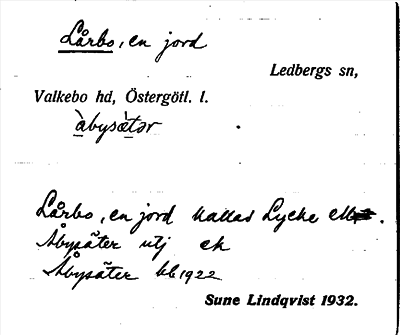 Lårbo, en jord
Ledbergs sn,
Valkebo hd, Östergötl. l.
àbysä̀tər
Lårbo, en jord kallas Lycke
Åbysäter utj ek
Åbysäter kb 1922
Sune Lindqvist 1932.